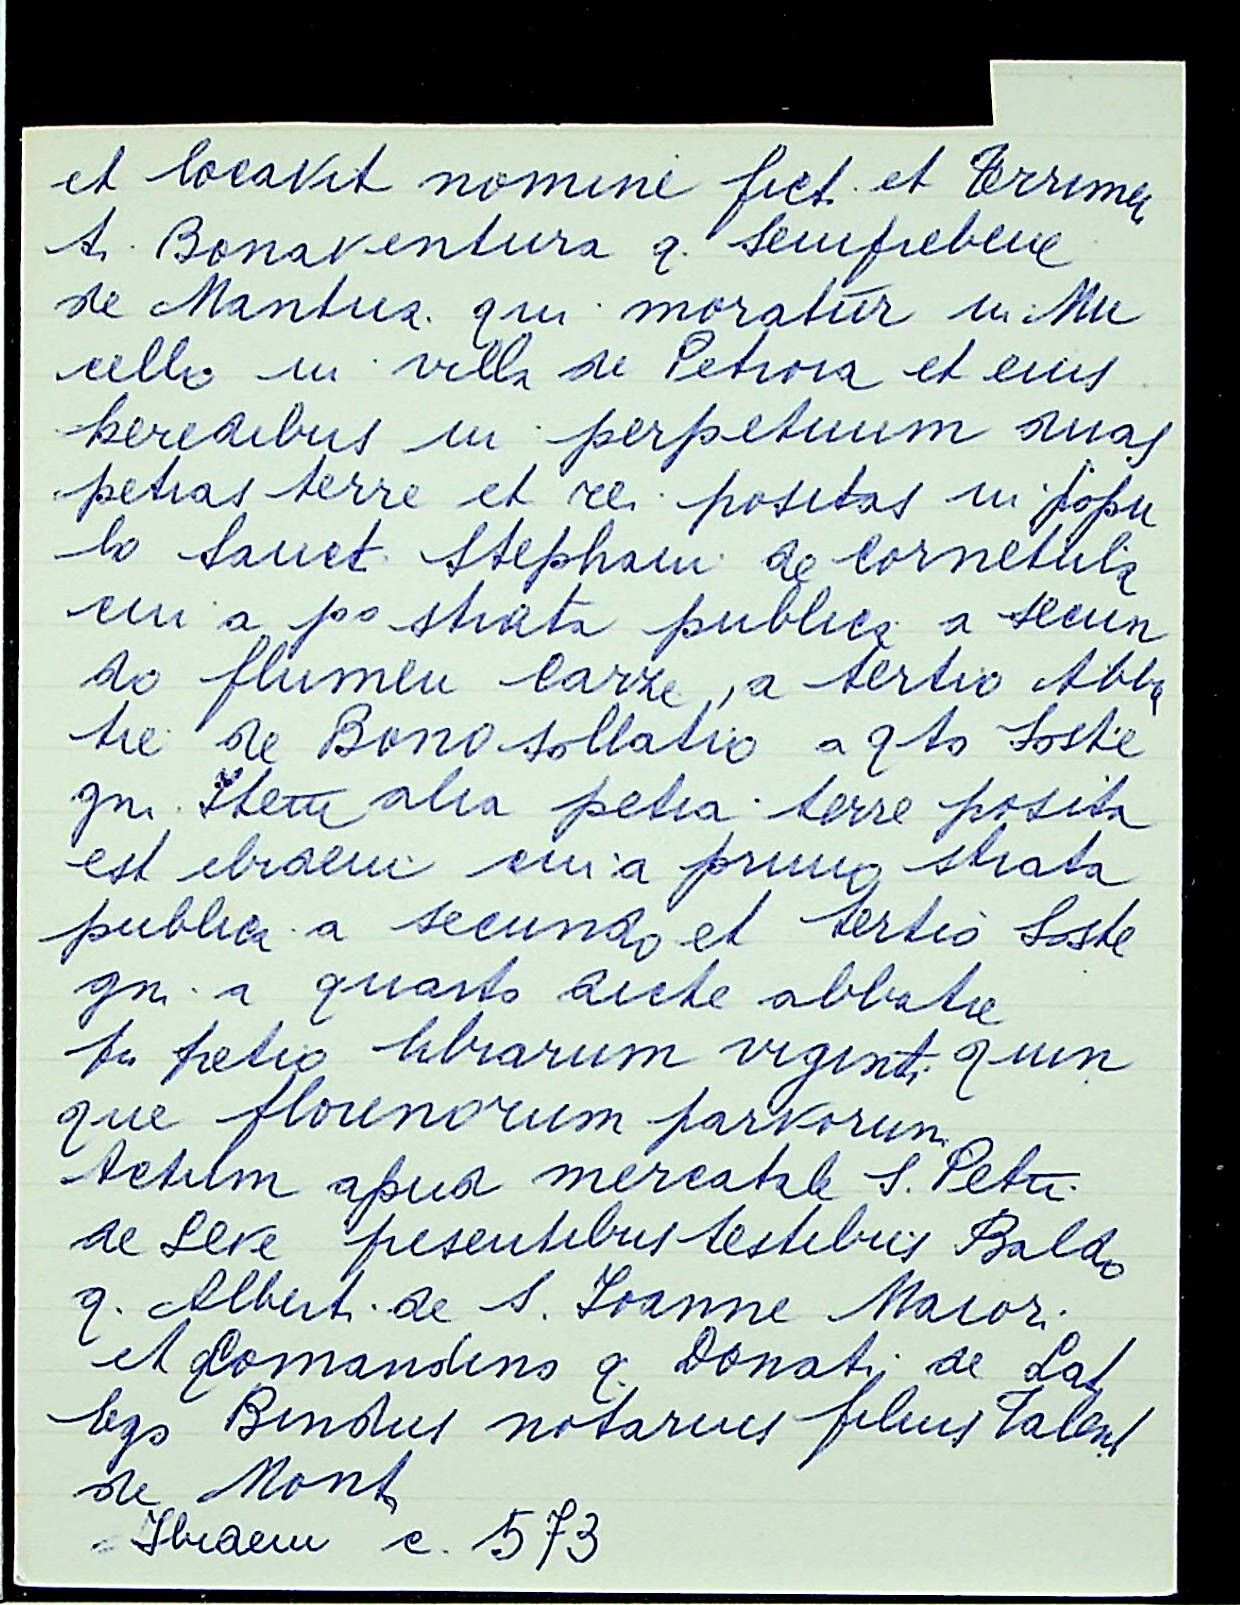 et locavit nomine fict. et terrimen
ti Bonaventura q. Semprebene
de Mantua. qui moratur in Mu
cello in villa de Petrora et eius
heredibus in perpetuum duas
petias terre et rei positas in popu
lo Sancti Stephani de Cornetula
cui a po strata publica a secun
do flumen Carze, a tertio Abba
tie de Bonosollatio a qto Soste
gni. Item alia petia terre posita
est ibidem cui a primo strata
publica a secundo et tertio Soste
gni a quarto dicte abbatie
pretio librarum viginti quin
que florenorum parvorum
Actum apud mercatale S. Petri
de Seve presentibus testibus Baldo
q. Alberti de S. Ioanne Maiori
et Comandino q. Donati de Lat
Ego Bindus notarius filius Talent
de Mont
Ibidem c. 573